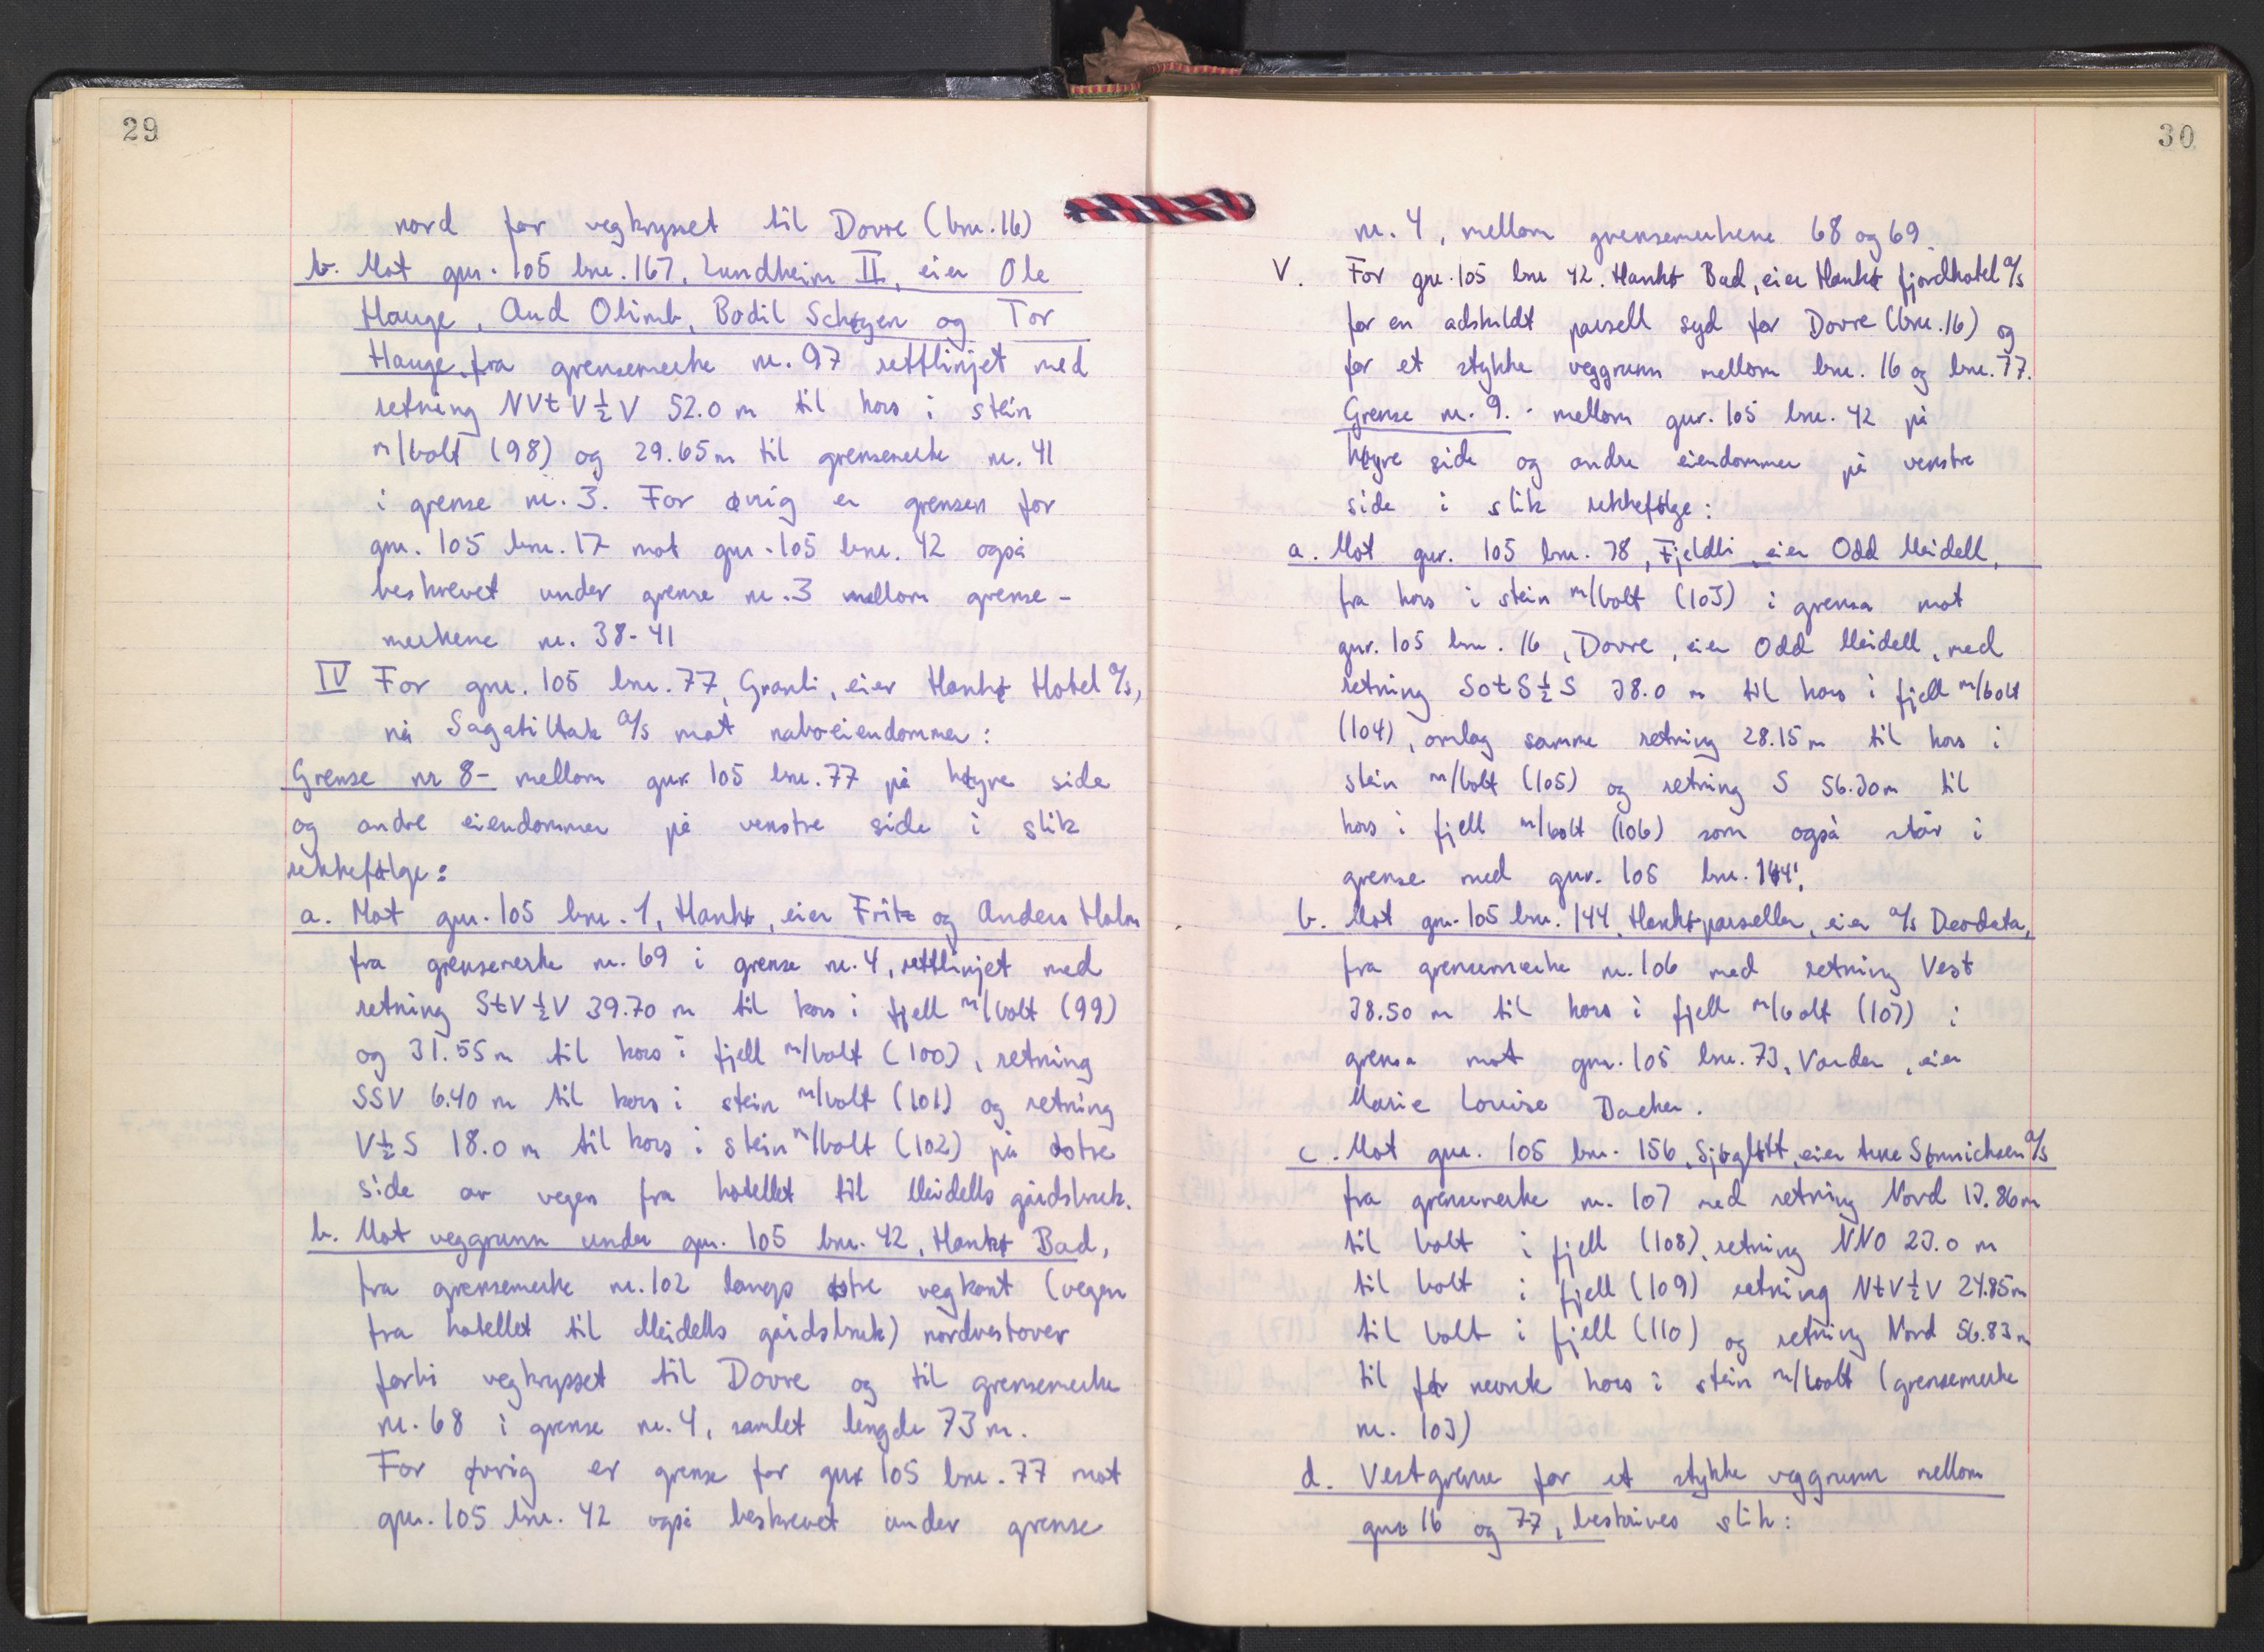 29
nord for vegkrysset til Dovre (bnr. 16)
b. Mot gnr. 105 bnr. 167, Lundheim II, eier Ole
Hauge, Aud Olimb, Bodil Schøyen og Tor
Hauge, fra grensemerke nr. 97 rettlinjet med
retning NVt V ½ V 52.0 m til kors i stein
m/bolt (98) og 29.65 m til grensemerke nr. 41
i grense nr. 3. For øvrig er grensen for
gnr. 105 bnr. 17 mot gnr. 105 bnr. 42 også
beskrevet under grense nr. 3 mellom grense-
merkene nr. 38-41
IV For gnr. 105 bnr. 77, Granli, eier Hankø Hotel a/s,
nå Sagatiltak a/s mot naboeiendommer:
Grense nr 8- mellom gnr 105 bnr. 77 på høyre side
og andre eiendommer på venstre side i slik
rekkefølge:
a. Mot gnr. 105 bnr. 1, Hankø, eier Fritz og Anders Holm
fra grensemerke nr. 69 i grense nr. 4, rettlinjet med
retning StV ½ V 39.70 m til kors i fjell m/bolt (99)
og 31.55 m til kors i fjell m/bolt (100), retning
SSV 6.40 m til kors i stein m/bolt (101) og retning
V ½ S 18.0 m til kors i stein m/bolt (102) på østre
side av vegen fra hotellet til Meidells gårdsbruk.
b. Mot veggrunn under gnr. 105 bnr. 42, Hankø Bad,
fra grensemerke nr. 102 langs østre vegkant (vegen
fra hotellet til Meidells gårdsbruk) nordvestover
forbi vegkrysset til Dovre og til grensemerke
nr. 68 i grense nr. 4, samlet lengde 73 m.
For øvrig er grense for gnr 105 bnr. 77 mot
gnr. 105 bnr. 42 også beskrevet under grense
30
nr. 4, mellom grensemerkene 68 og 69.
V. For gnr. 105 bnr 42. Hankø Bad, eier Hankø fjordhotel a/s
for en adskildt parsell syd for Dovre (bnr. 16) og
for et stykke veggrunn mellom bnr. 16 og bnr. 77.
Grense nr. 9. - mellom gnr. 105 bnr. 42 på
høyre side og andre eiendommer på venstre
side i slik rekkefølge:
a. Mot gnr. 105 bnr. 38, Fjeldli, eier Odd Meidell,
fra kors i stein m/bolt (103) i grensa mot
gnr. 105 bnr. 16, Dovre, eier Odd Meidell, med
retning SøtS ½ S 38.0 m til kors i fjell m/bolt
(104), omlag samme retning 28.15 m til kors i
stein m/bolt (105) og retning S 56.30 m til
kors i fjell m/bolt (106) som også står i
grense med gnr. 105 bnr. 144.
b. Mot gnr. 105 bnr. 144, Hankø-parseller, eier a/s Deodata,
fra grensemerke nr. 106 med retning Vest
38.50 m til kors i fjell m/bolt (107) i
grensa mot gnr. 105 bnr. 73, Varden, eier
Marie Louise Dacher.
c. Mot gnr. 105 bnr. 156, Sjøgløtt, eier Arne Sønnichsen a/s
fra grensemerke nr. 107 med retning Nord 13.86 m
til bolt i fjell (108), retning NNO 23.0 m
til bolt i fjell (109) retning NtV ½ V 24.85 m
til bolt i fjell (110) og retning Nord 56.83 m
til før nevnte kors i stein m/bolt (grensemerke
nr. 103)
d. Vestgrense for et stykke veggrunn mellom
gnr 16 og 77, beskrives slik: